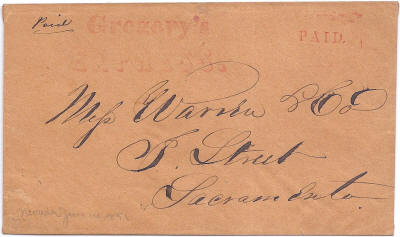 Paid
Gregory's
EXPRESS.
PAID.
Mess Warren & Co
J. Street
Sacramento